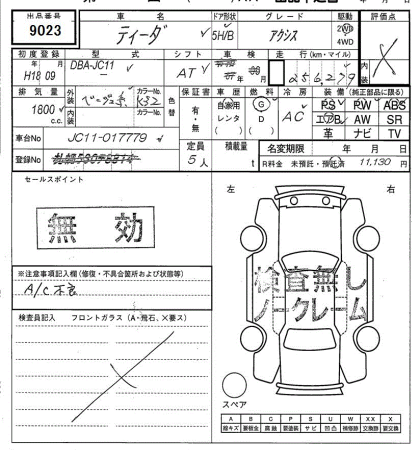 出品番号 車名 ドア形状 グレード 駆動 評価点
9023 ティーダ 5H/B アクシス 2WD 4WD
初度登録 型式 シフト 車検 走行(km・マイル) 内装
年 月 年 月
H18 09 DBA-JC11 AT 256,279
排気量 外装 カラーNo. 色替 保証書 車歴 燃料 冷房 装備(純正部品に限る)
1800 c.c. ベージュ系 K32 有・無 自家用 レンタ G D AC PS PW ABS
内装 エアB AW SR
車台No JC11-017779 革 ナビ TV
定員 積載量 名変期限 年 月 日
登録No 5人 t R料金 未預託・預託済 11,130 円
セールスポイント 左 右
無効
検査無し
ノークレーム
※注意事項記入欄(修復・不具合箇所および状態等)
A/C不良
検査員記入 フロントガラス(A・飛石、×要ス)
スペア
A P C S U W XX X
線キズ 要板金 腐蝕 要塗装 サビ 凹凸 補修跡 交換済 要交換